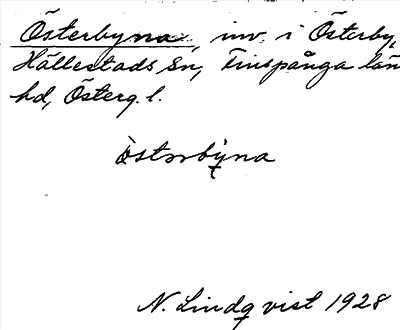 Österbyna, inv. i Österby,
Hällestads sn, Finspånga län
hd, Österg. l.
òstərby̬na
N. Lindqvist 1928